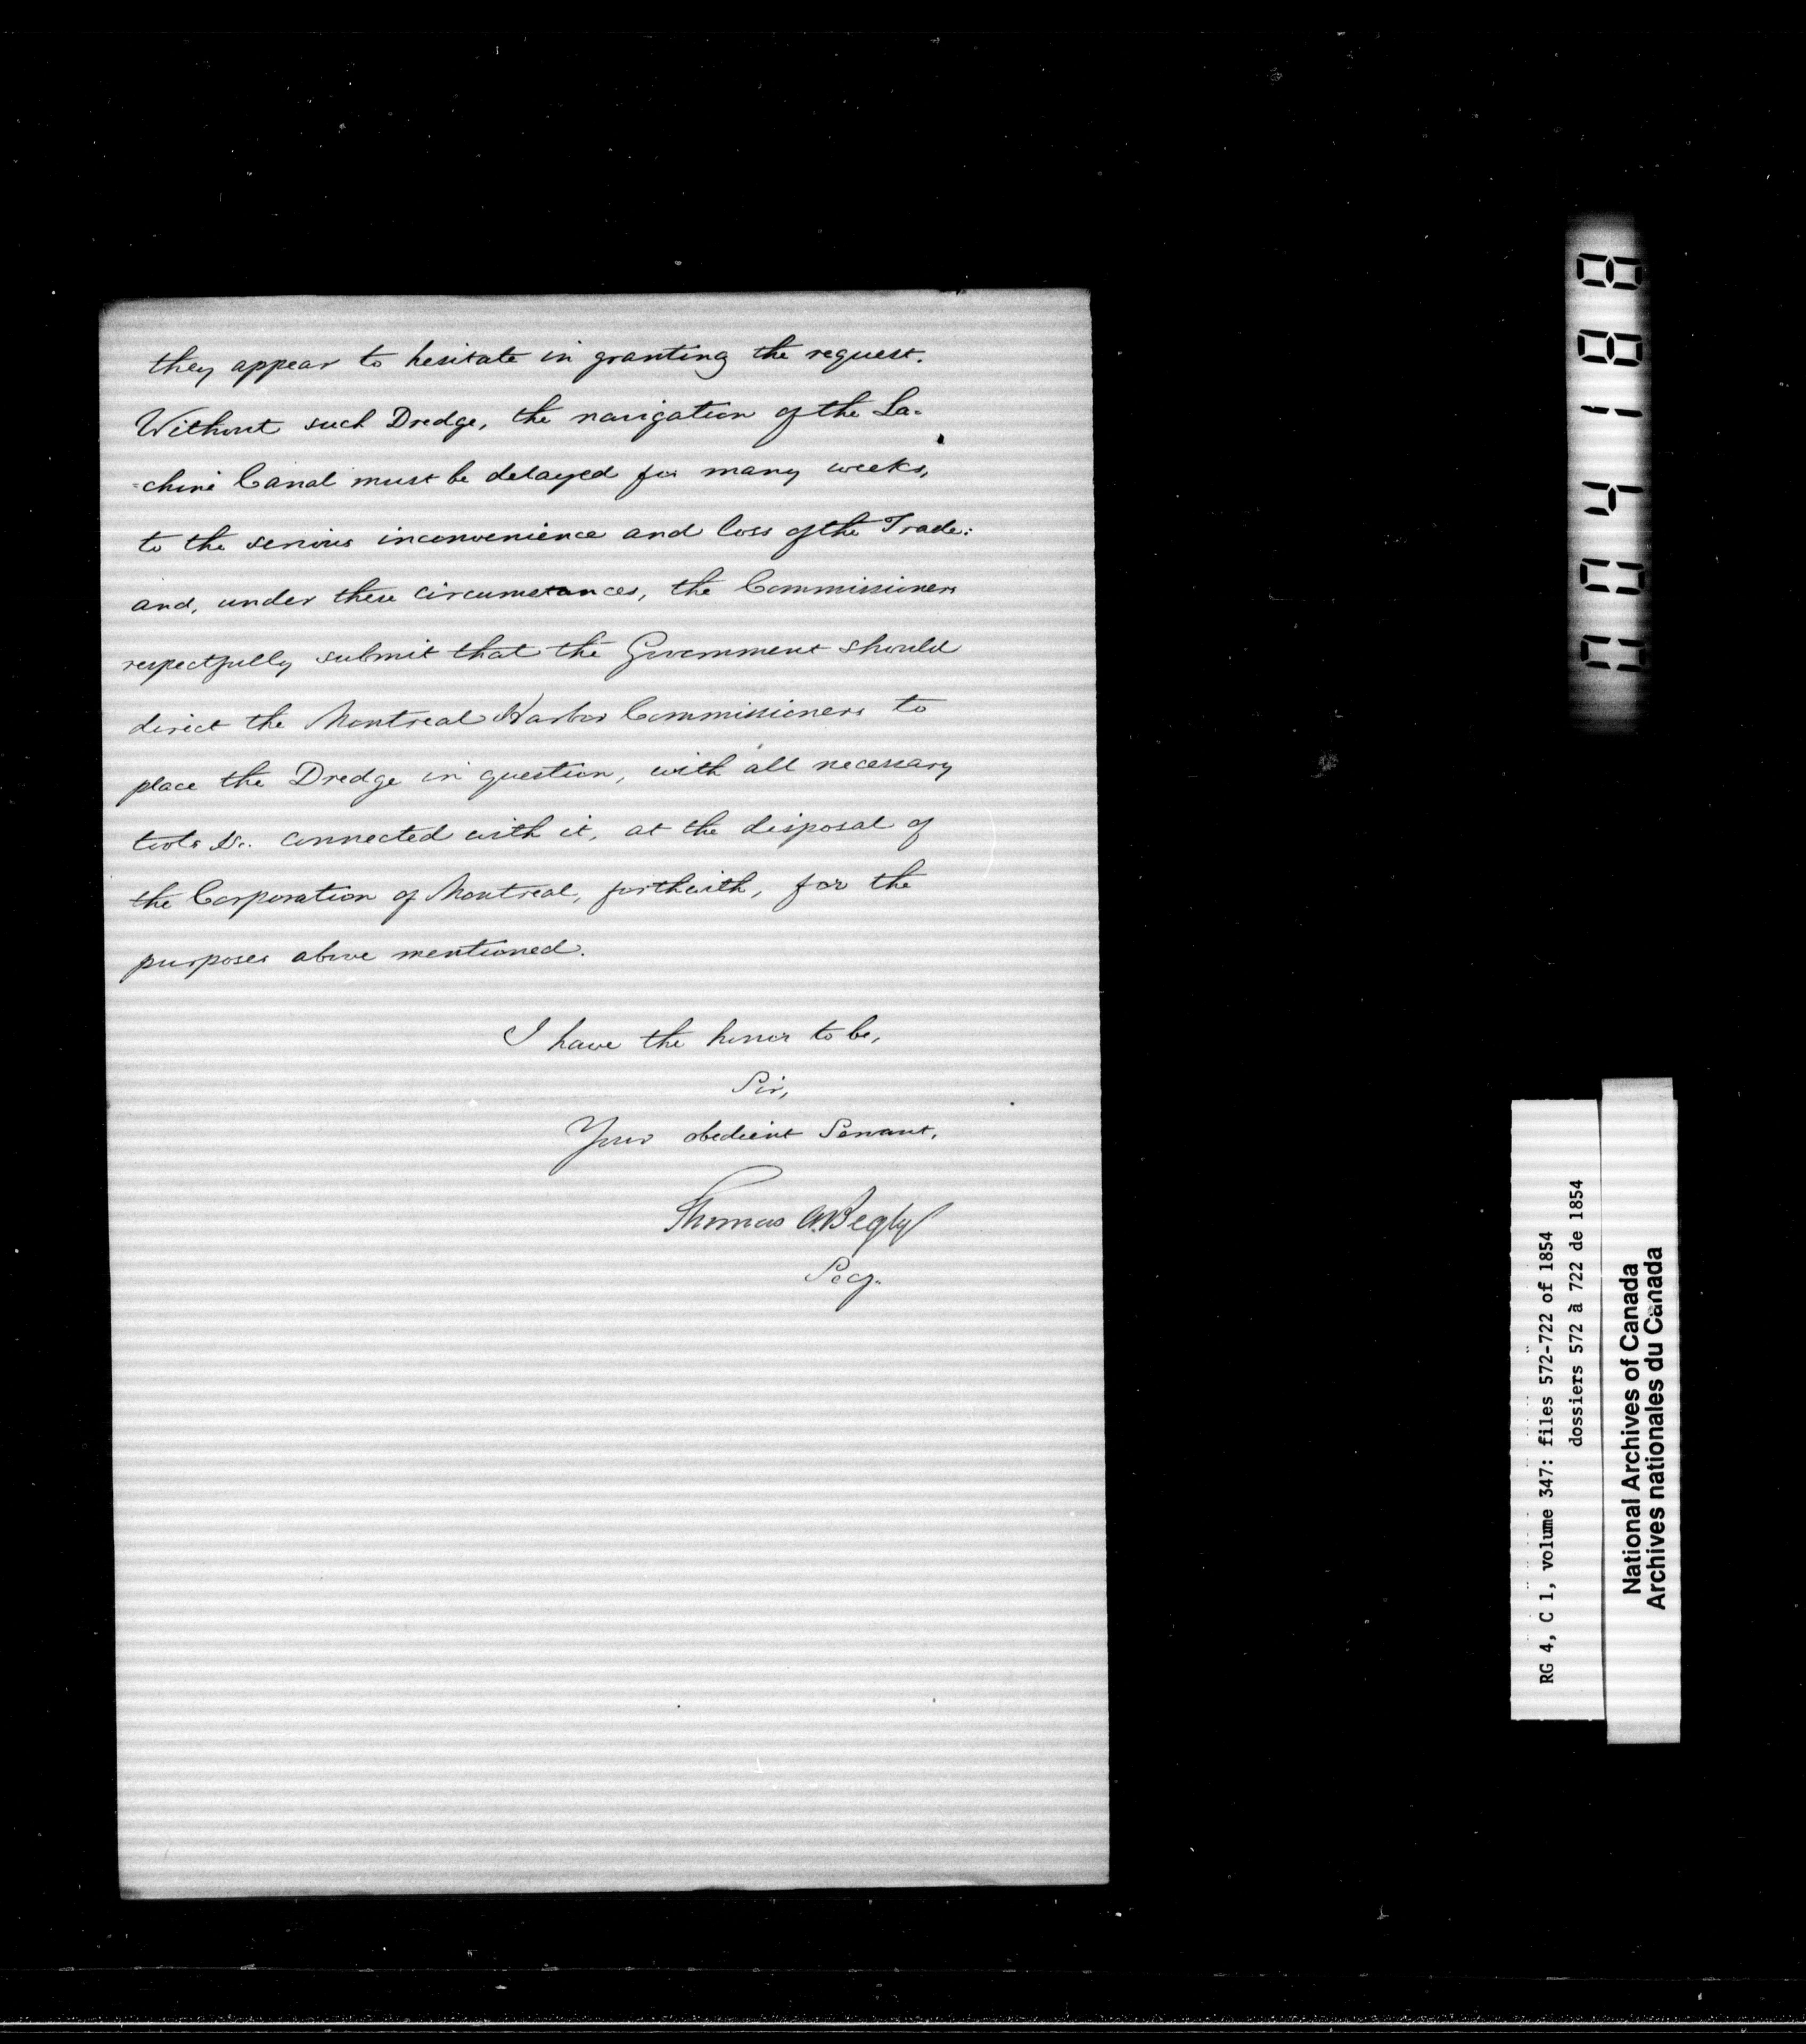 they appear to hesitate in granting the request.
Without such Dredge, the navigation of the La-
-chine Canal must be delayed for many weeks,
to the serious inconvenience and loss of the Trade:
and, under these circumstances, the Commissioners
respectfully submit that the Government should
direct the Montreal Harbor Commissioners to
place the Dredge in question, with all necessary
tools &c. connected with it, at the disposal of
the Corporation of Montreal, forthwith, for the
purposes above mentioned.
I have the honor to be,
Sir,
Your obedient Servant,
Thomas A. Begly
Secy.
004188
RG 4, C 1, volume 347: files 572-722 of 1854
dossiers 572 à 722 de 1854
National Archives of Canada
Archives nationales du Canada